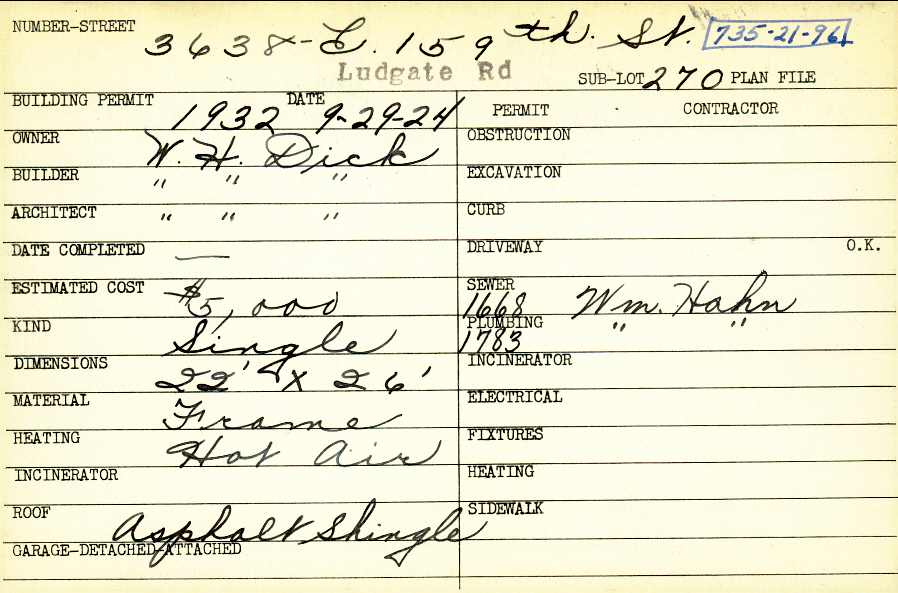 NUMBER-STREET 3638-E. 159th. St. 735-21-96
Ludgate Rd
SUB-LOT 270 PLAN FILE
BUILDING PERMIT 1932 DATE 9-29-24
PERMIT CONTRACTOR
OWNER W. H. Dick
OBSTRUCTION
BUILDER " " "
EXCAVATION
ARCHITECT " " "
CURB
DATE COMPLETED —
DRIVEWAY O.K.
ESTIMATED COST $5,000
SEWER 1668 Wm. Hahn
KIND Single
PLUMBING 1783 " "
DIMENSIONS 22' x 26'
INCINERATOR
MATERIAL Frame
ELECTRICAL
HEATING Hot Air
FIXTURES
INCINERATOR
HEATING
ROOF Asphalt Shingle
SIDEWALK
GARAGE-DETACHED-ATTACHED